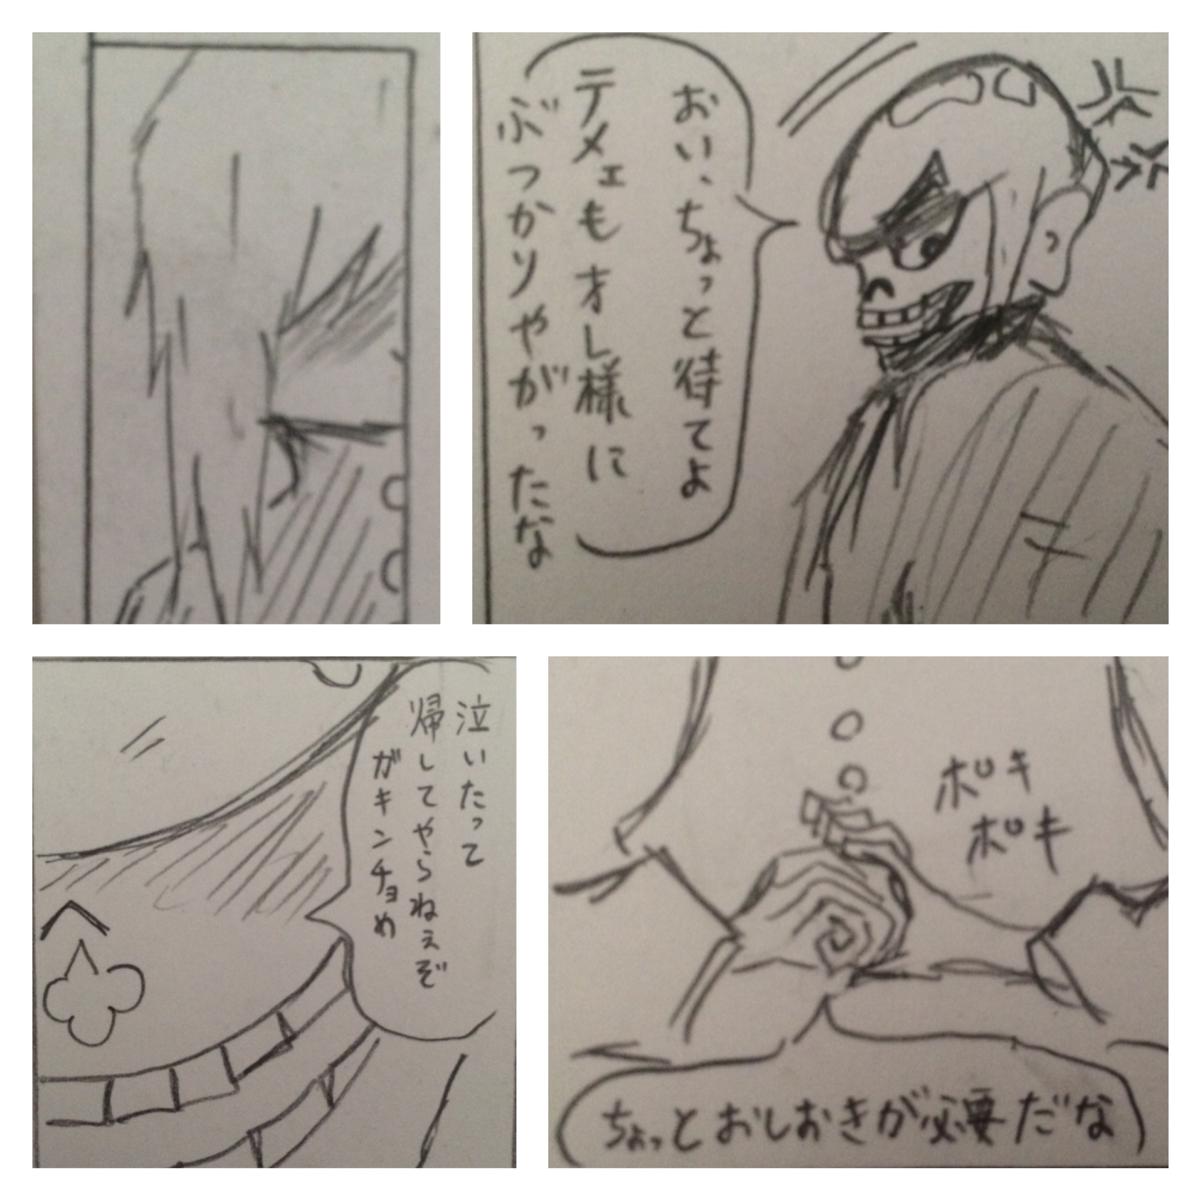 おい、ちょっと待てよ
テメェもオレ様に
ぶつかりやがったな
泣いたって
帰してやらねぇぞ
ガキンチョめ
ポキ
ポキ
ちょっとおしおきが必要だな